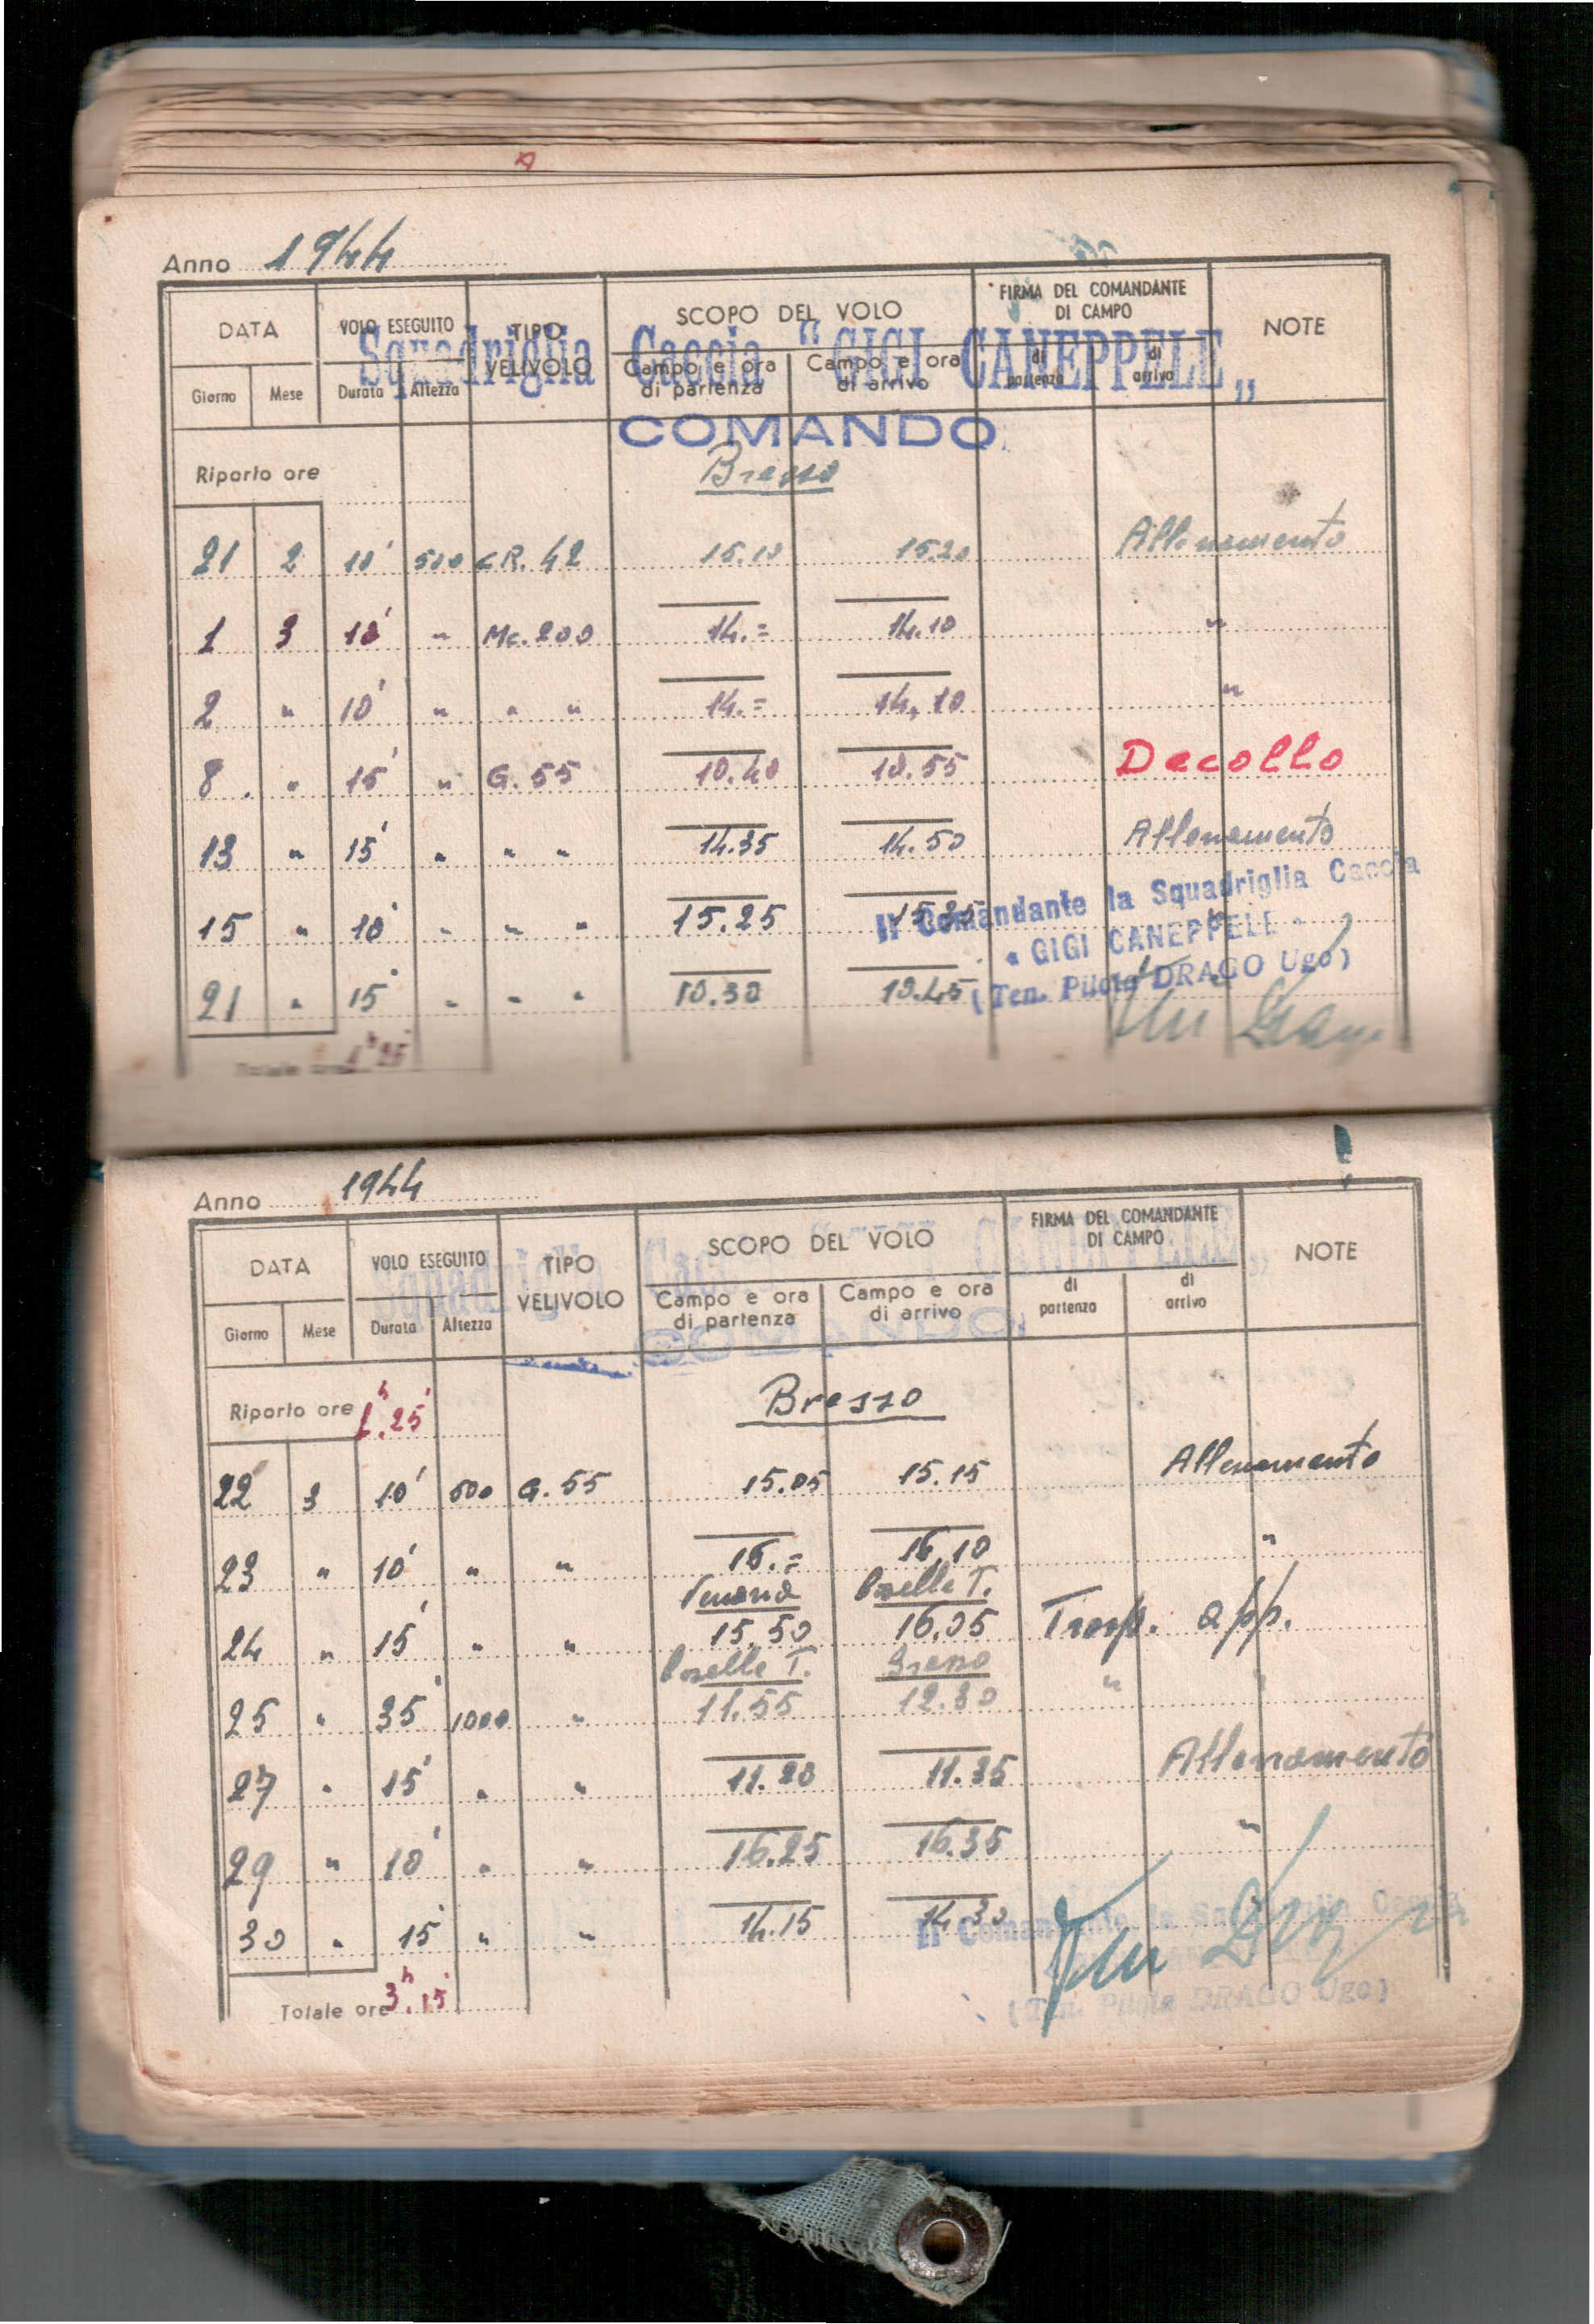 Anno 1944
DATA VOLO ESEGUITO TIPO VELIVOLO SCOPO DEL VOLO FIRMA DEL COMANDANTE DI CAMPO NOTE
Giorno Mese Durata Altezza Campo e ora di partenza Campo e ora di arrivo di partenza di arrivo
Squadriglia Caccia "GIGI CANEPPELE"
COMANDO
Riporto ore Bresso
21 2 10' 500 CR. 42 15.10 15.20 Allenamento
1 3 10' " Mc. 200 14.= 14.10 "
2 " 10' " " " 14.= 14.10 "
8 " 15' " G. 55 10.40 10.55 Decollo
13 " 15' " " " 14.35 14.50 Allenamento
15 " 10' " " " 15.25 15.35
21 " 15' " " " 10.30 10.45
Il Comandante la Squadriglia Caccia
"GIGI CANEPPELE"
(Ten. Pilota DRAGO Ugo)
Totale ore 1h 25'
Anno 1944
DATA VOLO ESEGUITO TIPO VELIVOLO SCOPO DEL VOLO FIRMA DEL COMANDANTE DI CAMPO NOTE
Giorno Mese Durata Altezza Campo e ora di partenza Campo e ora di arrivo di partenza di arrivo
Squadriglia Caccia CANEPPELE"
COMANDO
Riporto ore 1h.25' Bresso
22 3 10' 500 G. 55 15.05 15.15 Allenamento
23 " 10' " " 16.= 16.10 "
Venaria Caselle T.
24 " 15' " " 15.50 16.05 Trasp. app.
Caselle T. Bresso
25 " 35' 1000 " 11.55 12.30 " "
27 " 15' " " 11.20 11.35 Allenamento
29 " 10' " " 16.25 16.35 "
30 " 15' " " 14.15 14.30
Il Comandante la Squadriglia Caccia
(Ten. Pilota DRAGO Ugo)
Totale ore 3h.15'